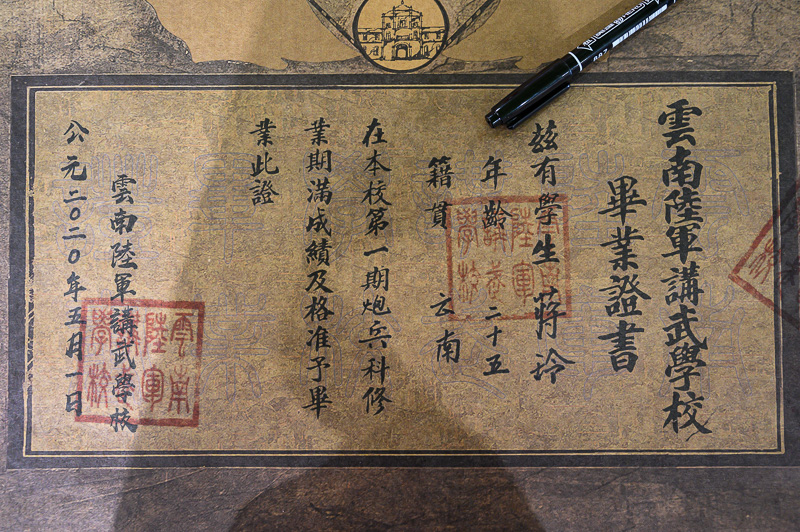 雲南陸軍講武學校
畢業證書
茲有學生 蔣玲
年齡 二十五
籍貫 云南
在本校第一期炮兵科修
業期滿成績及格准予畢
業此證
雲南陸軍講武學校
公元二〇二〇年五月一日
雲南
陸軍
講武
學校
雲南
陸軍
講武
學校